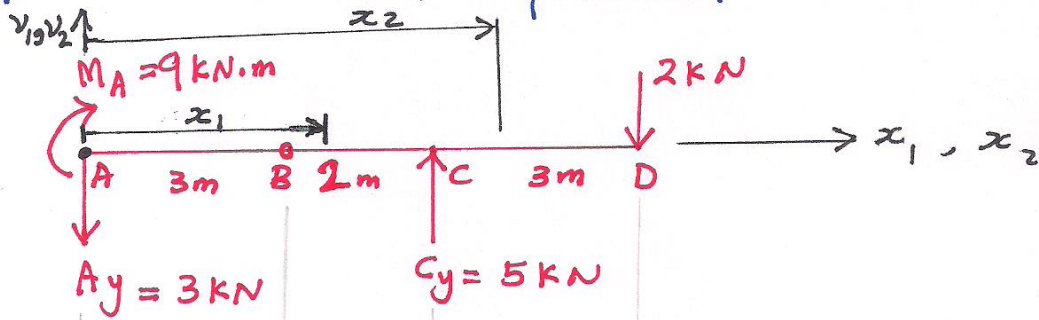 x2
v1, v2
MA = 9 KN.m
2KN
x1
x1 , x2
A 3m B 2m C 3m D
Ay = 3KN
Cy = 5KN